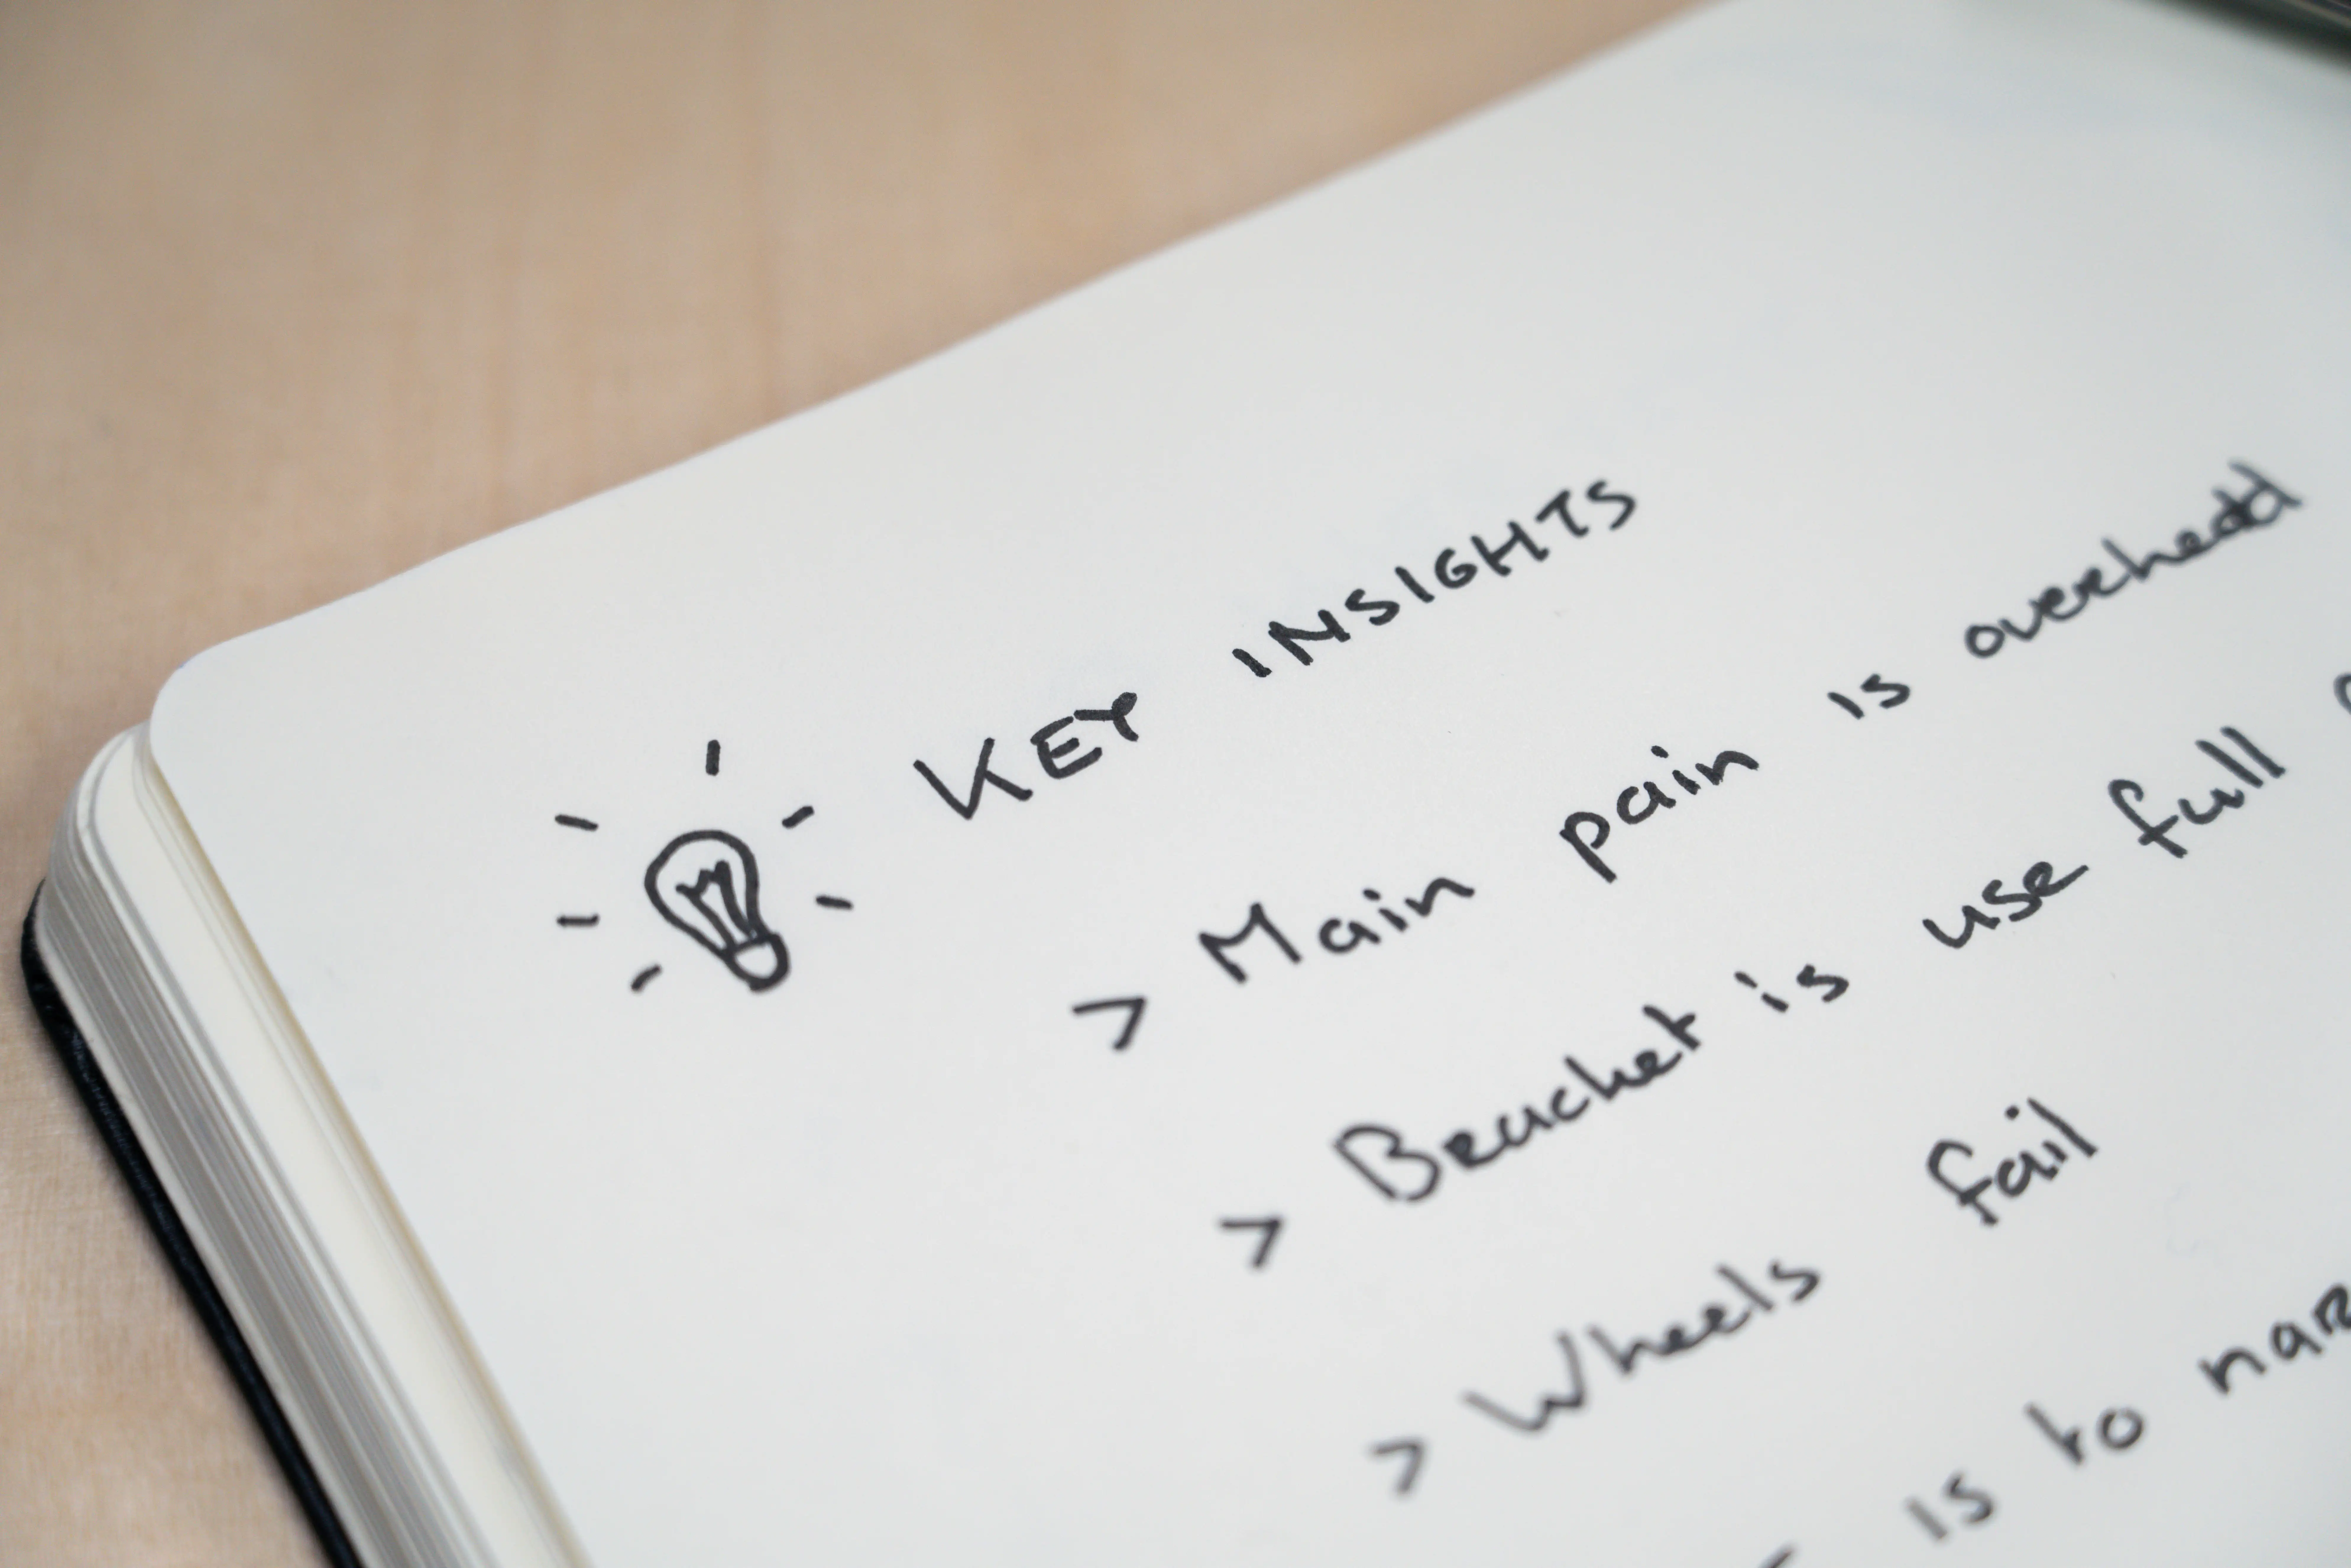 KEY INSIGHTS
> Main pain is overhead
> Bracket is use full
> Wheels fail
is to